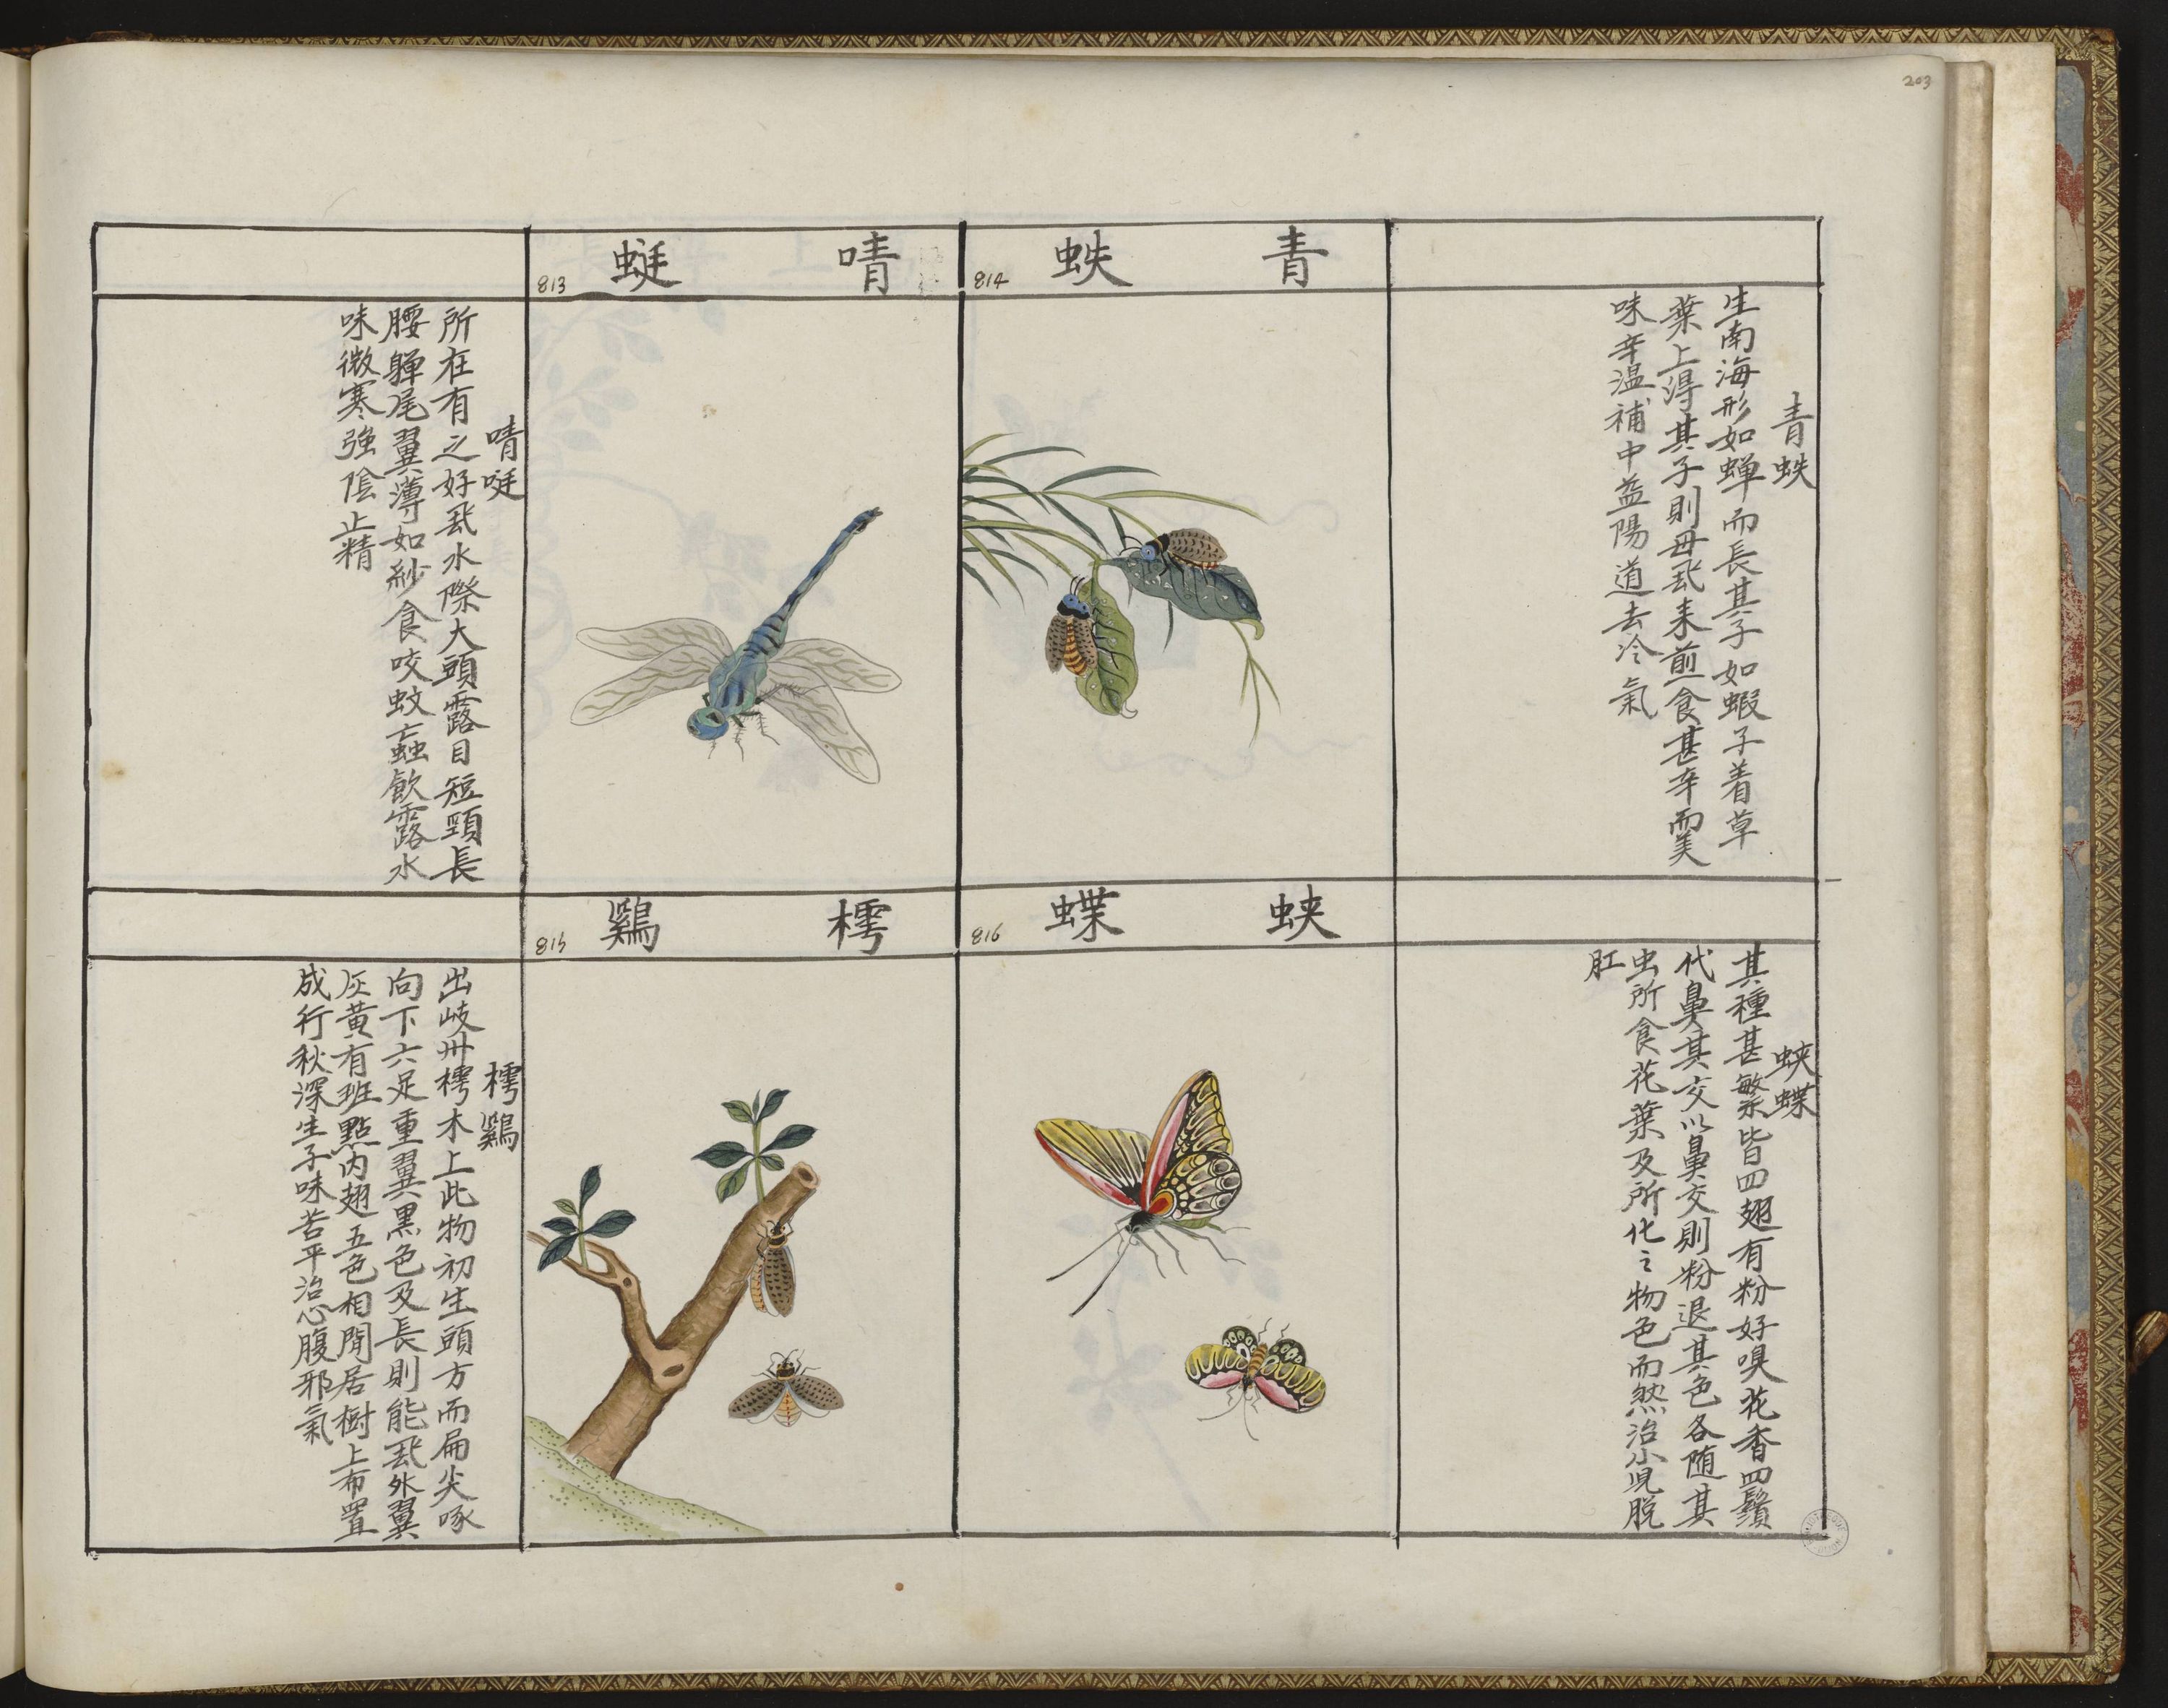 203
青蚨
814
青蚨
生南海形如蟬而長其子如蝦子着草
葉上得其子則母飛来煎食甚辛而美
味辛温補中益陽道去冷氣
蜻蜓
813
啨啶
所在有之好飛水際大頭露目短頸長
腰軃尾翼薄如紗食咬蚊蝱飲露水
味微寒強陰止精
蛺蝶
816
蛺蝶
其種甚繁皆四翅有粉好嗅花香四鬚
代鼻其交以鼻交則粉退其色各随其
虫所食花葉及所化之物色而然治小児脱
肛
樗鷄
815
樗鷄
出岐州樗木上此物初生頭方而扁尖啄
向下六足重翼黒色及長則能飛外翼
灰黃有班點内翅五色相間居樹上布置
成行秋深生子味苦平治心腹邪氣